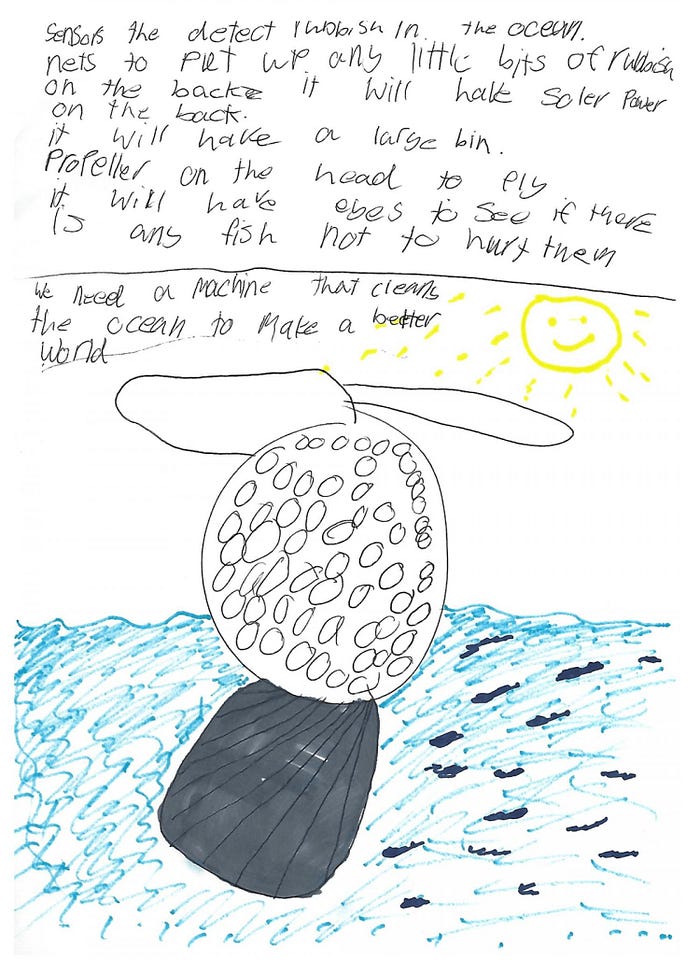 sensors the detect rubbish in the ocean.
nets to put up any little bits of rubbish
on the back it will have soler power
on the back.
it will have a large bin.
propeller on the head to fly
it will have eyes to see if there
is any fish not to hurt them
we need a machine that cleans
the ocean to make a better
world